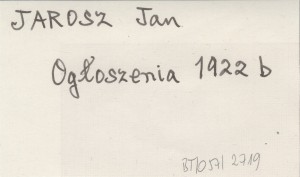 JAROSZ Jan
Ogłoszenia 1922 b
BT/057/2719